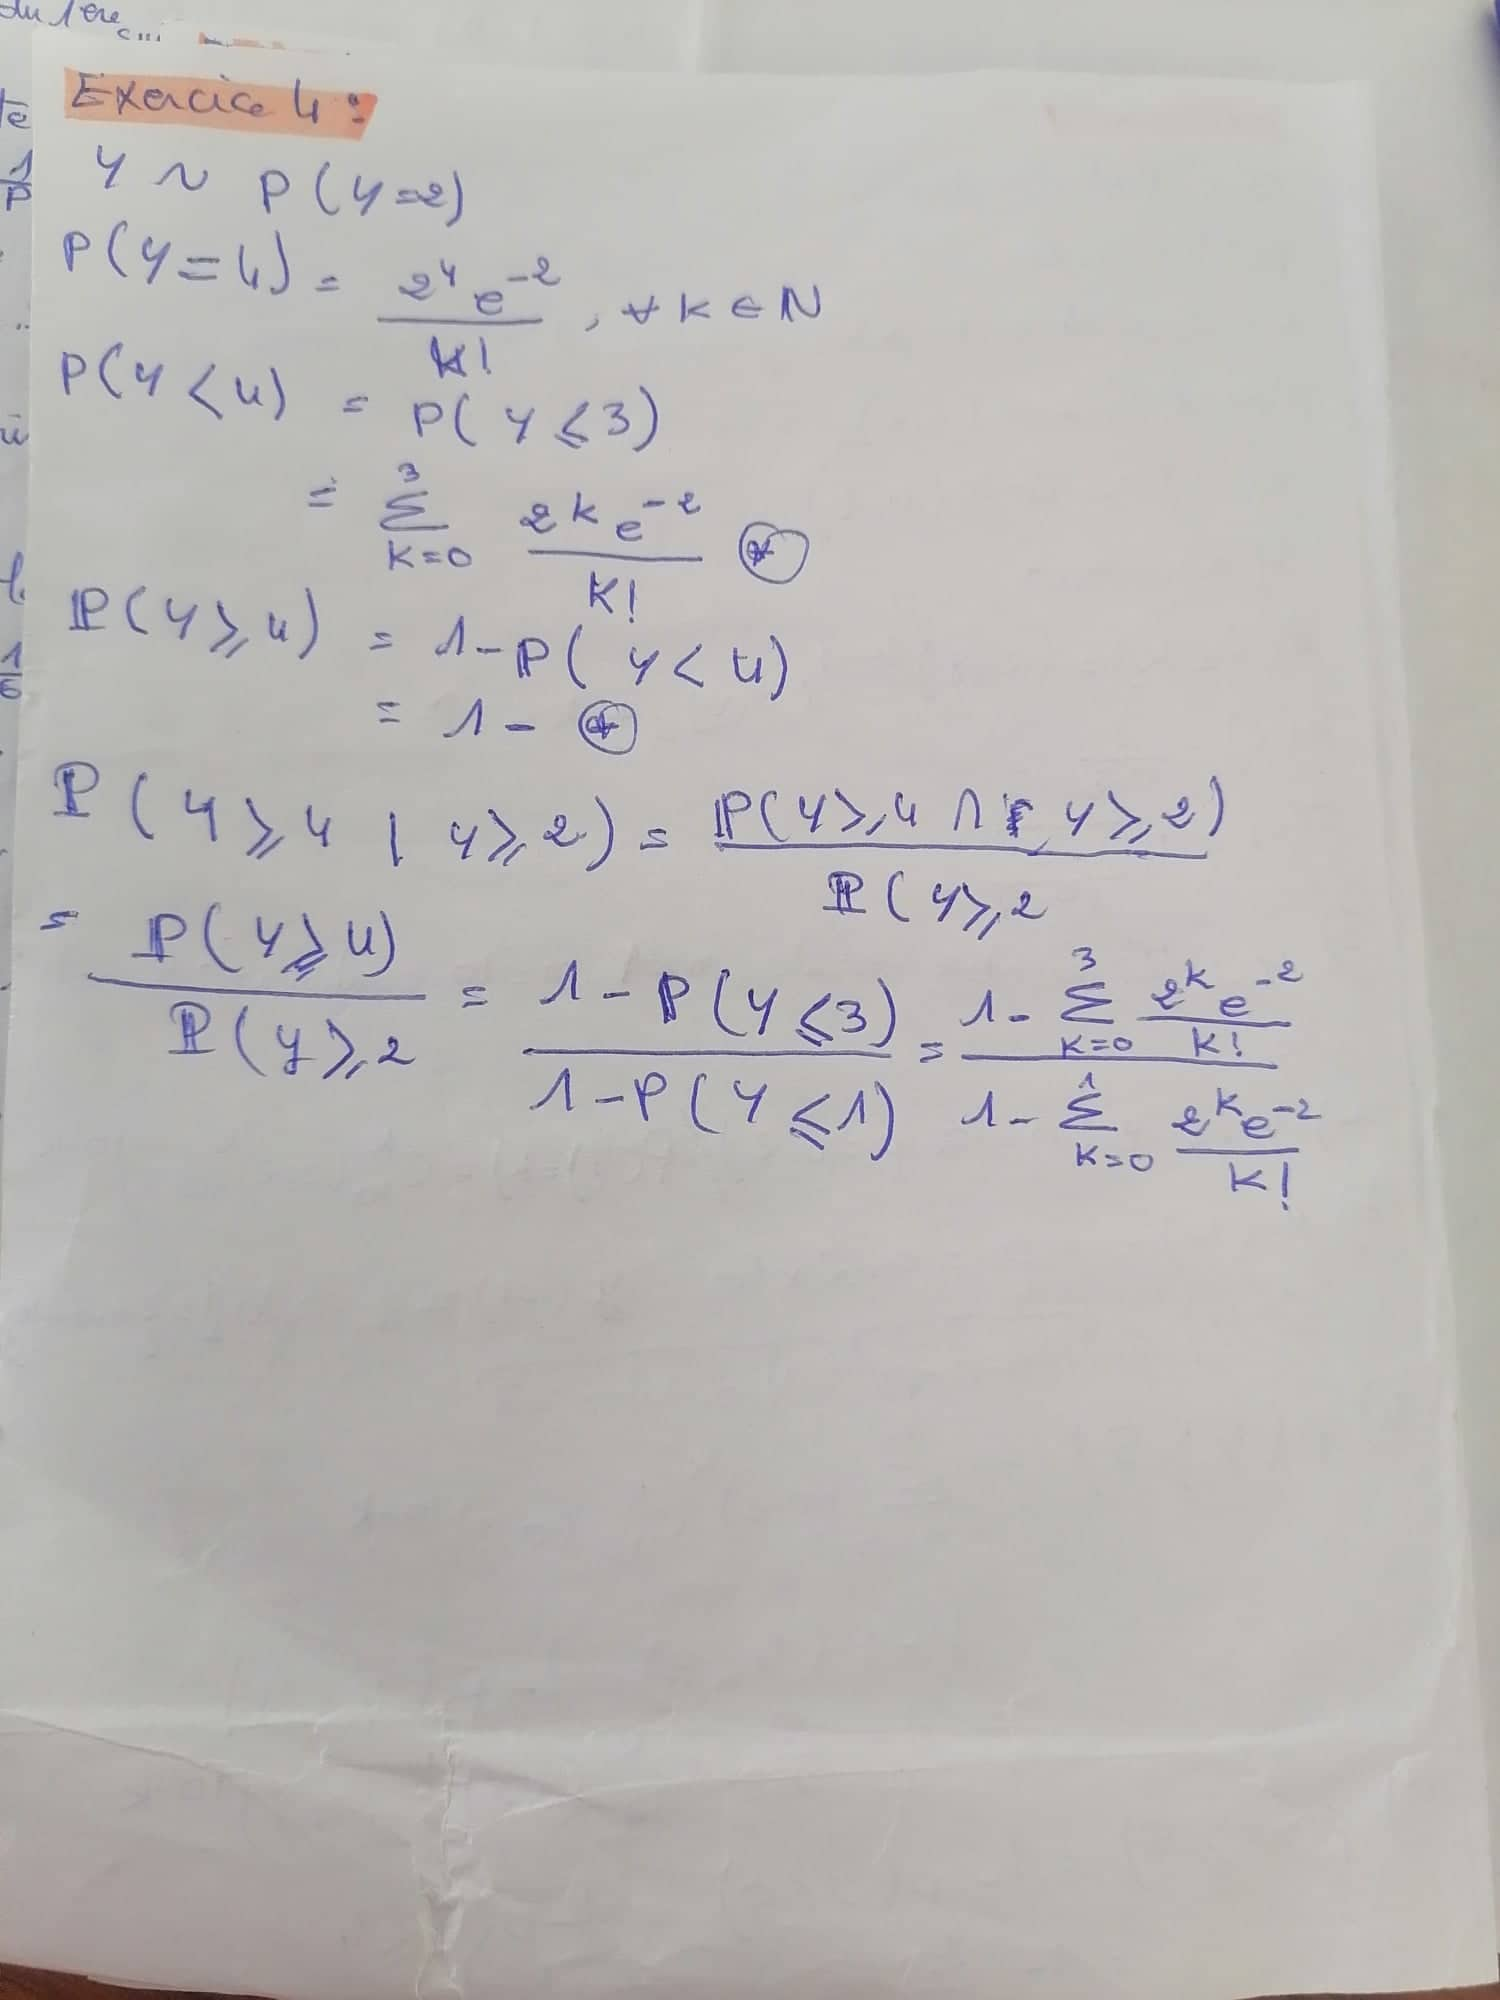 du 1ère
Exercice 4 :
Y ~ P(Y=2)
P(Y=4) = 2⁴ e⁻² / k! , ∀ k ∈ N
P(Y < 4) = P(Y ⩽ 3)
= Σ_{k=0}^{3} 2^k e⁻² / k! ⊛
P(Y ⩾ 4) = 1 - P(Y < 4)
= 1 - ⊛
P(Y ⩾ 4 | Y ⩾ 2) = P(Y ⩾ 4 ∩ Y ⩾ 2) / P(Y ⩾ 2
= P(Y ⩾ 4) / P(Y ⩾ 2 = 1 - P(Y ⩽ 3) / 1 - P(Y ⩽ 1) = 1 - Σ_{k=0}^{3} 2^k e⁻² / k! / 1 - Σ_{k=0}^{1} 2^k e⁻² / k!